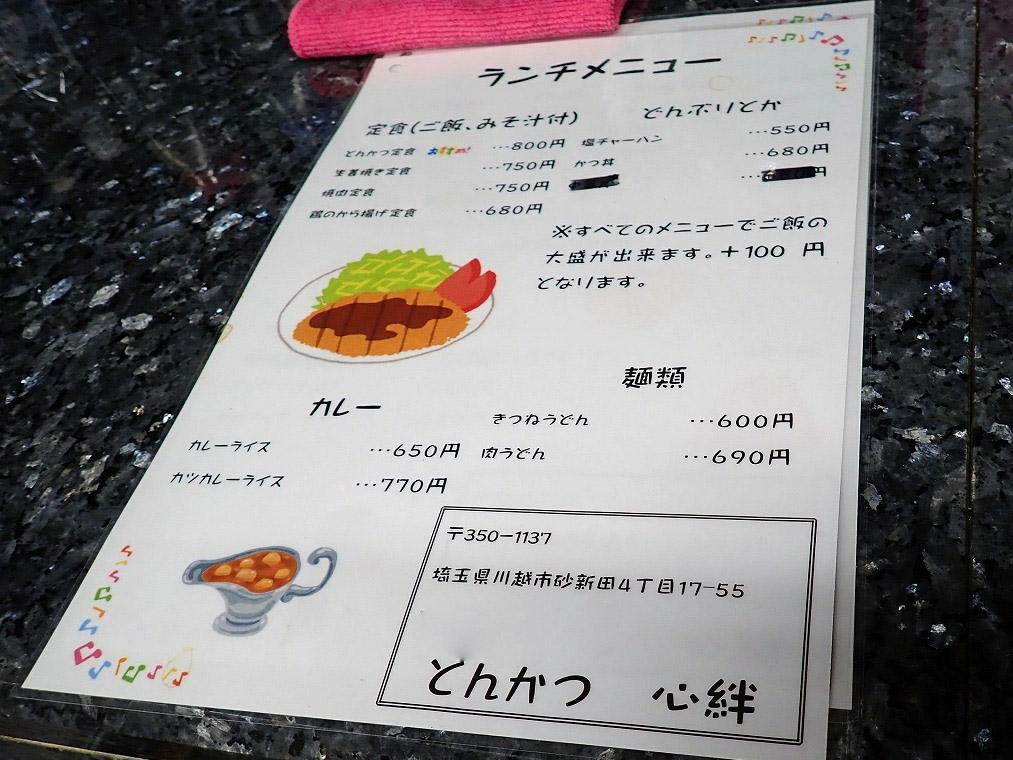 ランチメニュー
定食(ご飯、みそ汁付)
とんかつ定食 おすすめ! …800円
生姜焼き定食 …750円
焼肉定食 …750円
鶏のから揚げ定食 …680円
どんぶりとか
塩チャーハン …550円
かつ丼 …680円
※すべてのメニューでご飯の
大盛が出来ます。+100 円
となります。
カレー
カレーライス …650円
カツカレーライス …770円
麺類
きつねうどん …600円
肉うどん …690円
〒350-1137
埼玉県川越市砂新田4丁目17-55
とんかつ 心絆